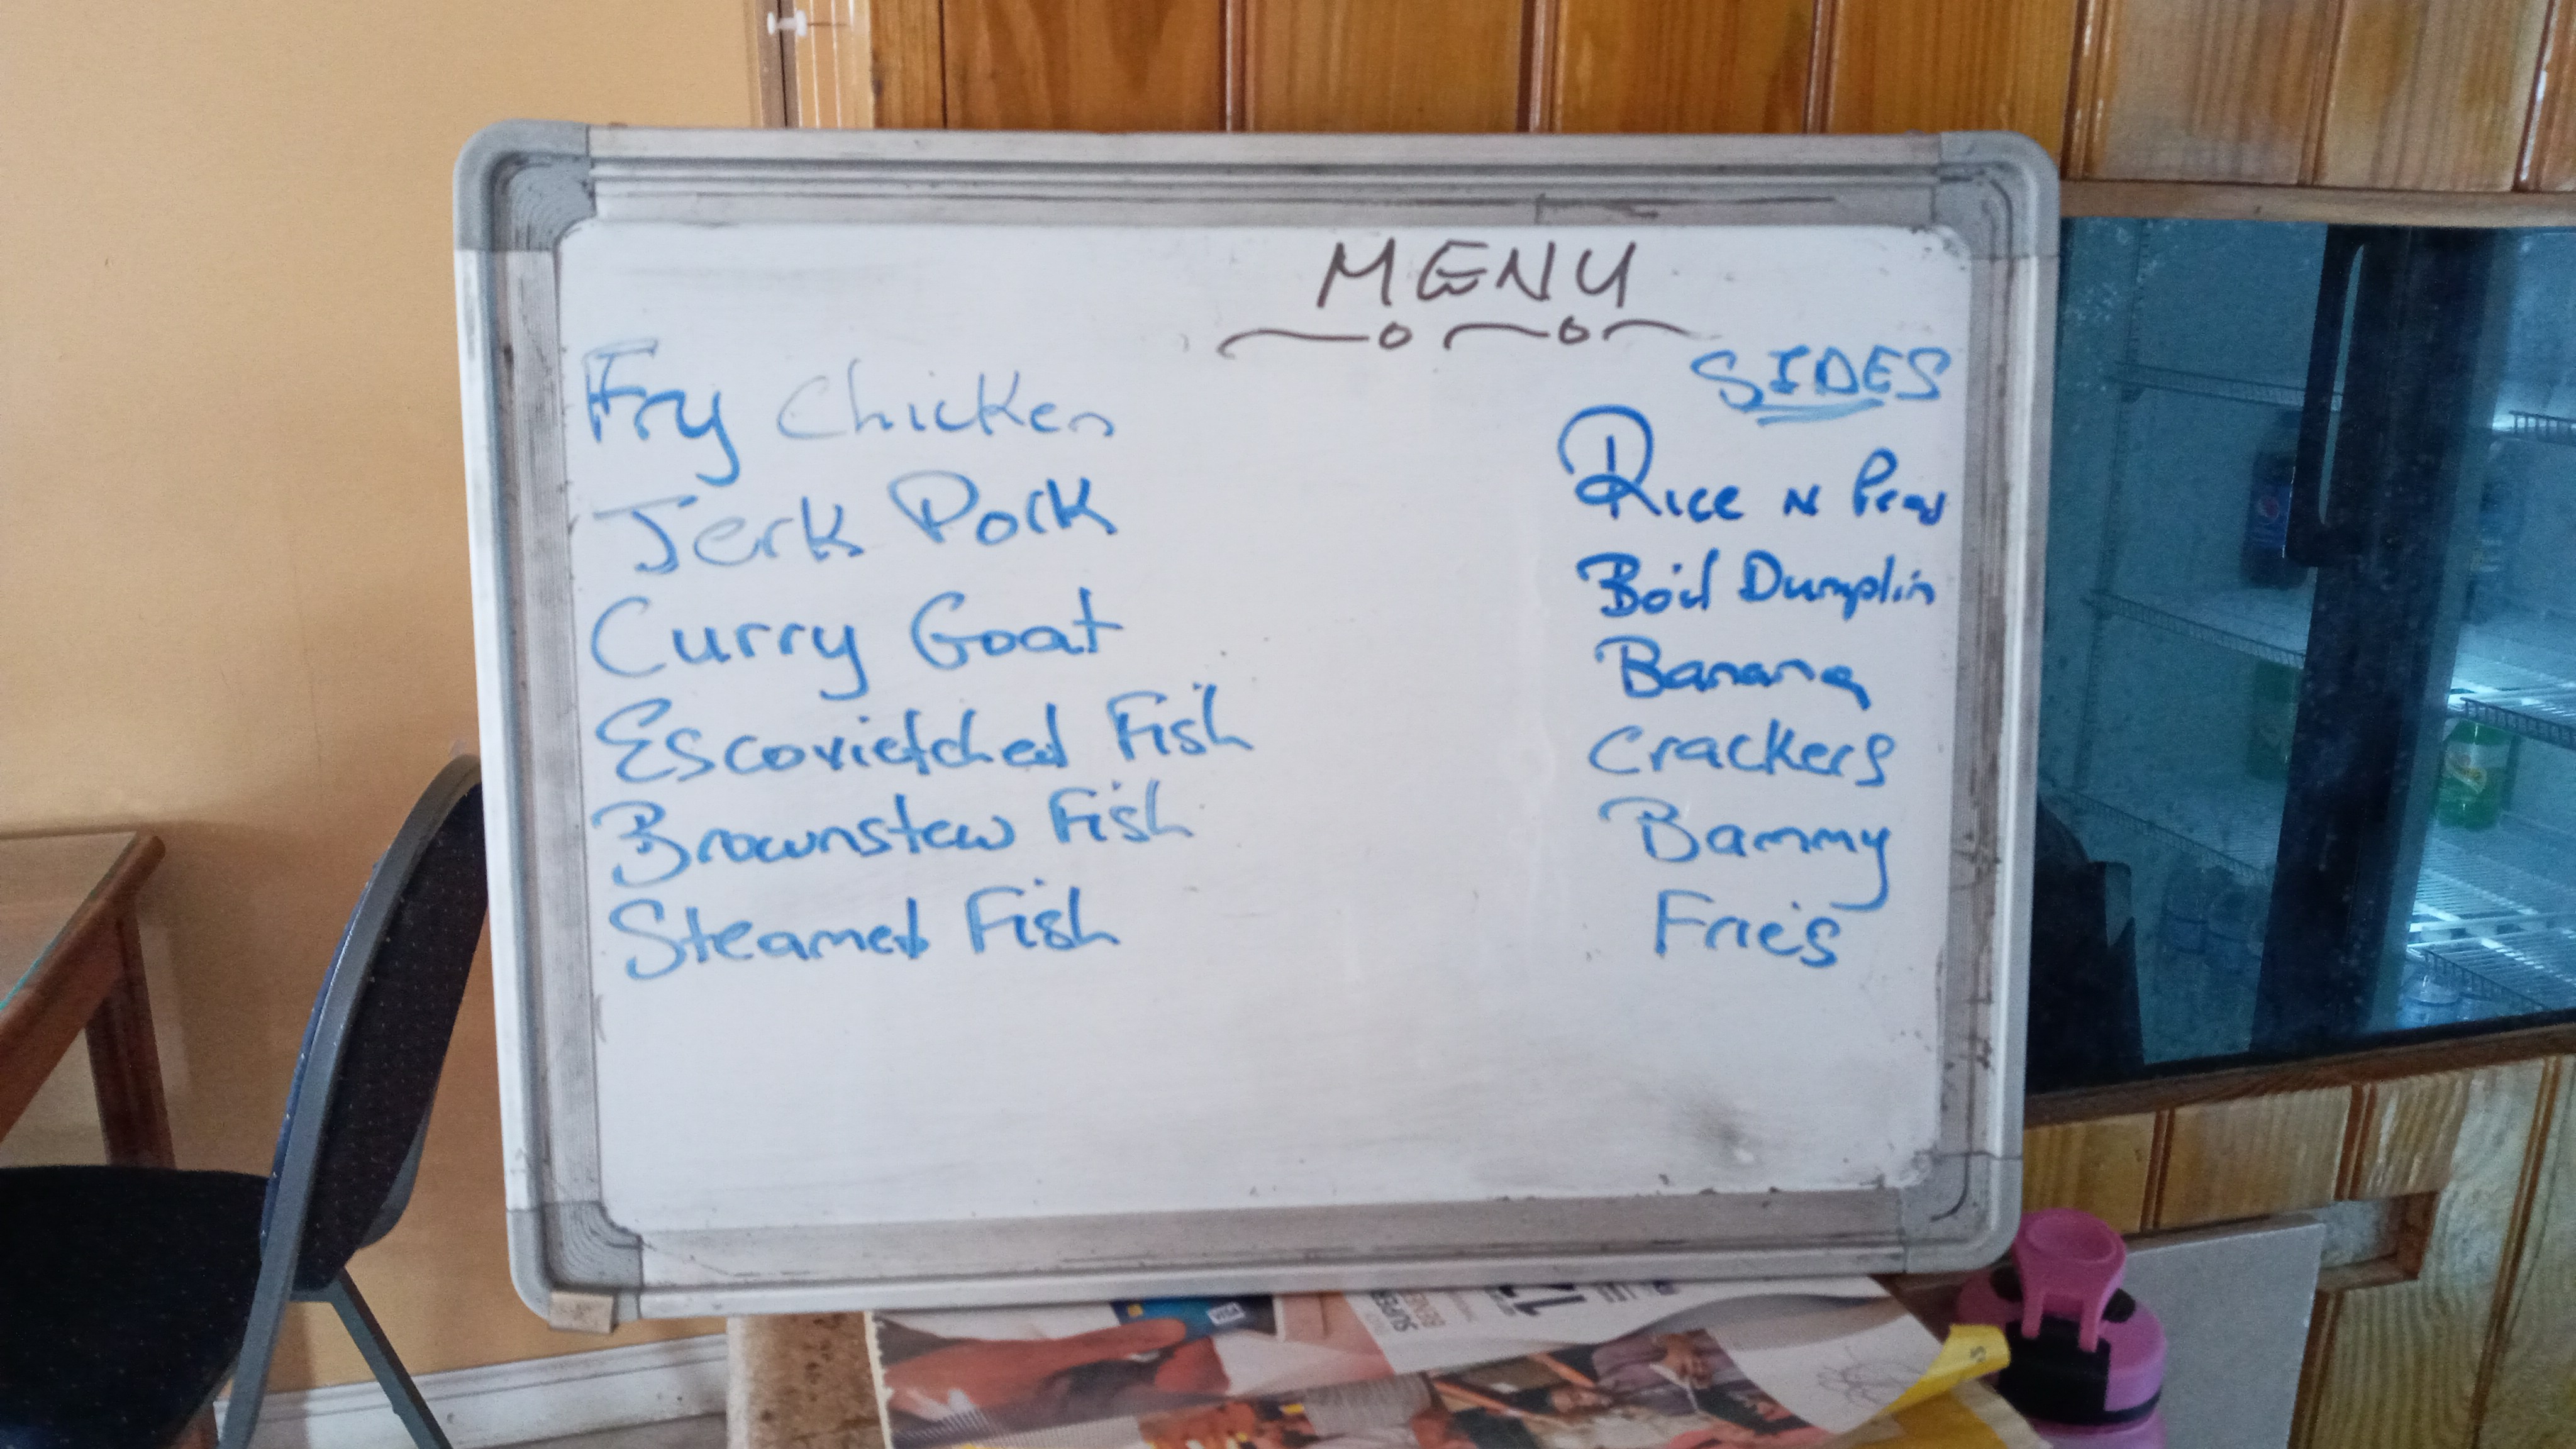 MENU
Fry Chicken
Jerk Pork
Curry Goat
Escovietched Fish
Brownstew Fish
Steamed Fish
SIDES
Rice N Peas
Boil Dumplin
Banana
Crackers
Bammy
Fries
VISA